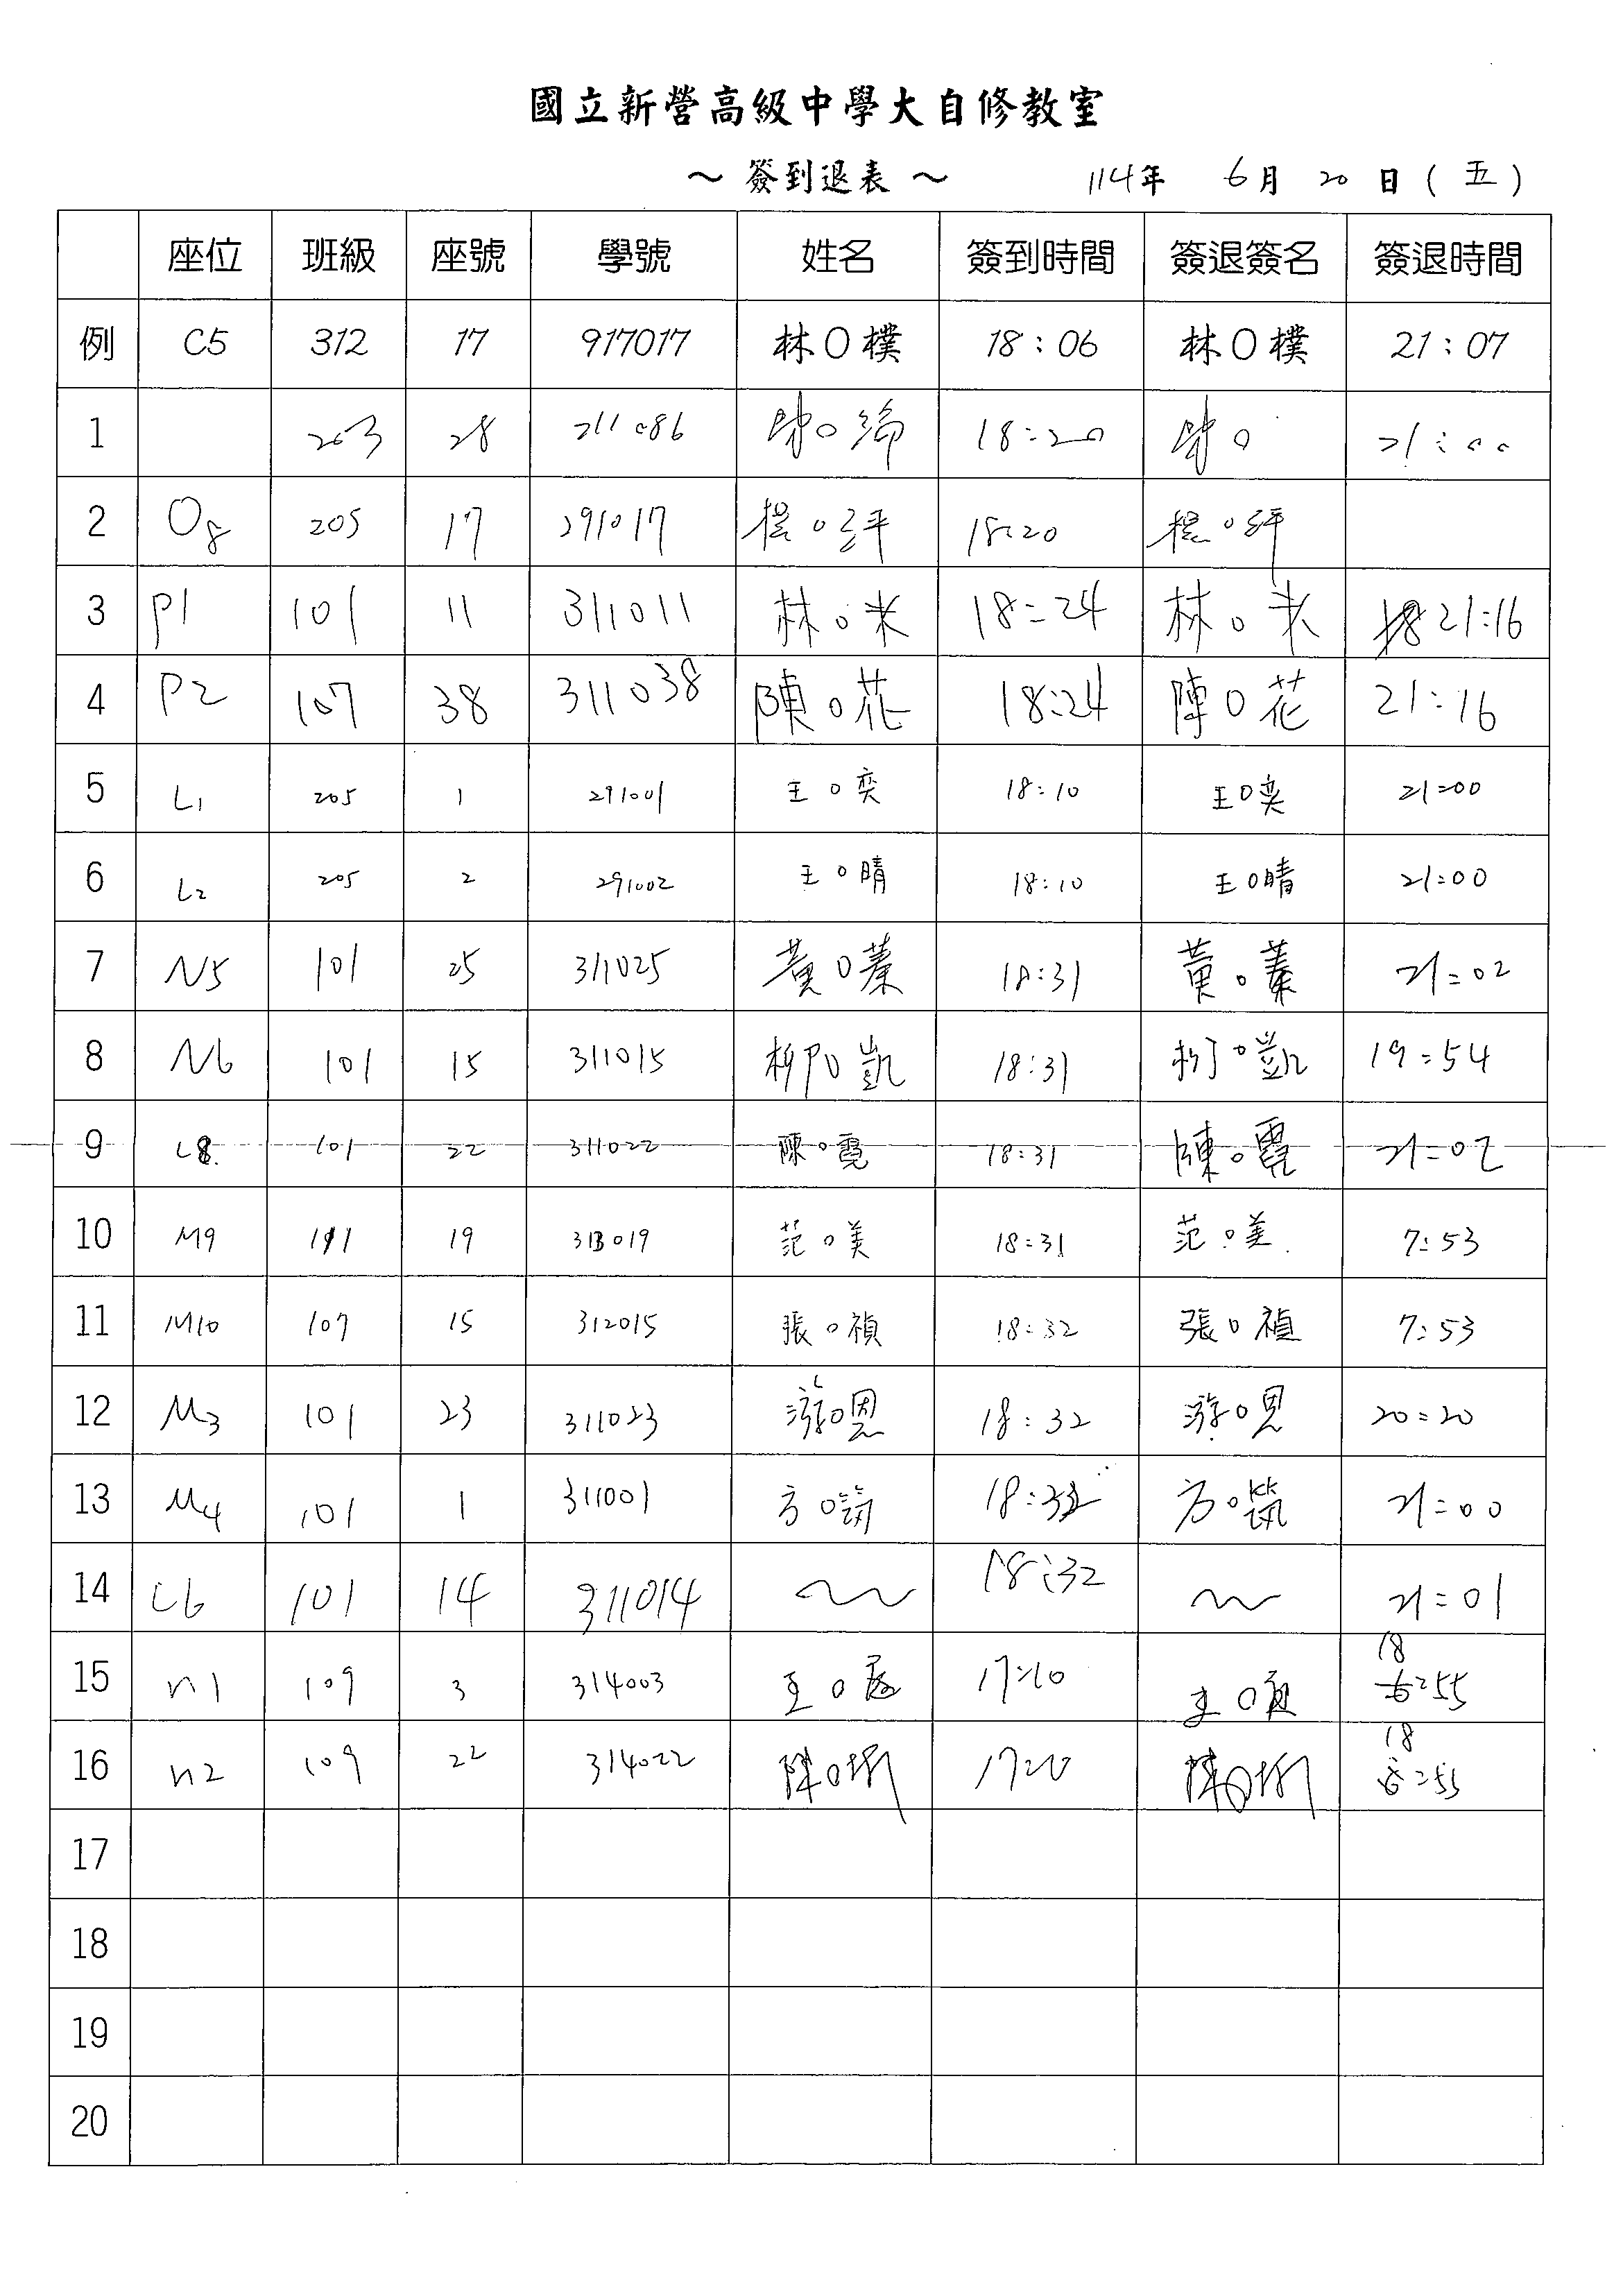 國立新營高級中學大自修教室
～ 簽到退表 ～ 114年 6月 20日(五)
座位 班級 座號 學號 姓名 簽到時間 簽退簽名 簽退時間
例 C5 312 17 917017 林O樸 18:06 林O樸 21:07
1 203 28 211086 陳O 18:20 陳O 21:00
2 O8 205 17 291017 楊O評 18:20 楊O評
3 P1 101 11 311011 林O米 18:24 林O米 21:16
4 P2 107 38 311038 陳O花 18:24 陳O花 21:16
5 L1 205 1 291001 王O奕 18:10 王O奕 21:00
6 L2 205 2 291002 王O晴 18:10 王O晴 21:00
7 N5 101 25 311025 黃O蓁 18:31 黃O蓁 21:02
8 N6 101 15 311015 柳O凱 18:31 柳O凱 19:54
9 L8 101 22 311022 陳O霓 18:31 陳O霓 21:02
10 M9 111 19 313019 范O美 18:31 范O美 7:53
11 M10 107 15 312015 張O禎 18:32 張O禎 7:53
12 M3 101 23 311023 游O恩 18:32 游O恩 20:20
13 M4 101 1 311001 方O筑 18:32 方O筑 21:00
14 L6 101 14 311014 18:32 21:01
15 n1 109 3 314003 王O 17:10 王O 18:55
16 n2 109 22 314022 陳O 17:20 陳O 18:55
17
18
19
20